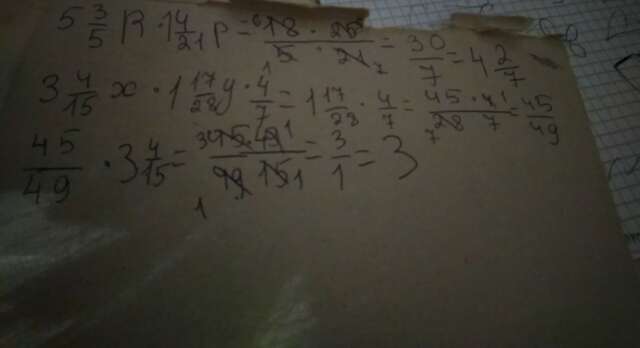 5 3/5 R · 1 4/21 p = 18 · 25 / 5 · 21 = 30/7 = 4 2/7
3 4/15 x · 1 17/28 y · 4/7 = 1 17/28 · 4/7 = 45 · 41 / 28 7 = 45/49
45/49 · 3 4/15 = 45 · 49 / 49 15 = 3/1 = 3